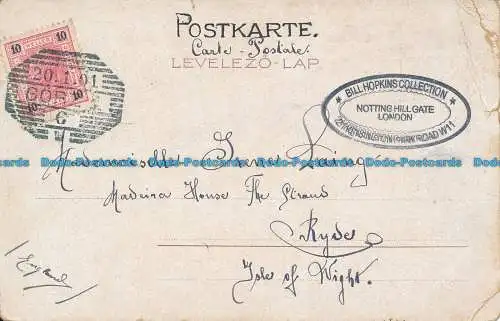 POSTKARTE.
Carte - Postale.
LEVELEZŐ-LAP
10 HELLER 10
10 10
20.1.01
GÖR
C
BILL HOPKINS COLLECTION
NOTTING HILL GATE
LONDON
KENSINGTON PARK ROAD W11
Mademoiselle Irene Laing
Madeira House The Strand
Ryde
Isle of Wight.
(England)
Postcards Dodo-Postcards Dodo-Postcards Dodo-Postcards Dodo-Postcards